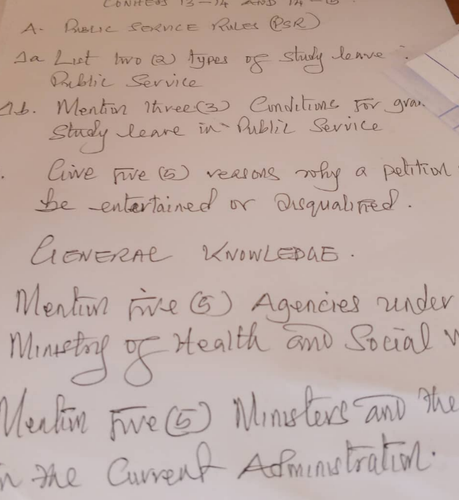 CONHESS 13-14 AND 14-15
A- PUBLIC SERVICE RULES (PSR)
1a List two (2) types of study leave :
Public Service
1b. Mention three (3) Conditions For gran
Study leave in Public Service
. Give Five (5) reasons why a petition
be entertained or Disqualified.
GENERAL KNOWLEDGE.
Mention Five (5) Agencies under
Ministry of Health and Social W
Mention Five (5) Ministers and the
n the Current Administration.